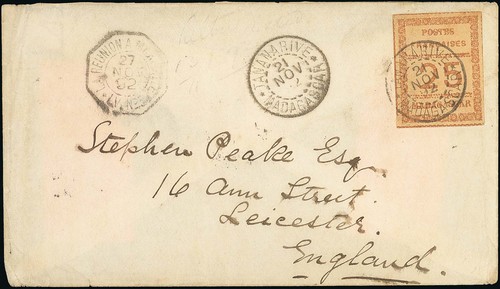 27
NOV
92
TANANARIVE
21
NOV
MADAGASCAR
POSTES
MADAGASCAR
21
NOV
92
Stephen Peake Esq.
16 Ann Street.
Leicester.
England.